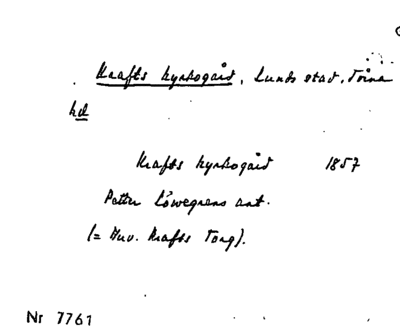 Krafts kyrkogård, Lunds stad, Torna
hd
Krafts kyrkogård 1857
Petter Löwegrens ant.
(= Nuv. Krafts Torg).
Nr 7761